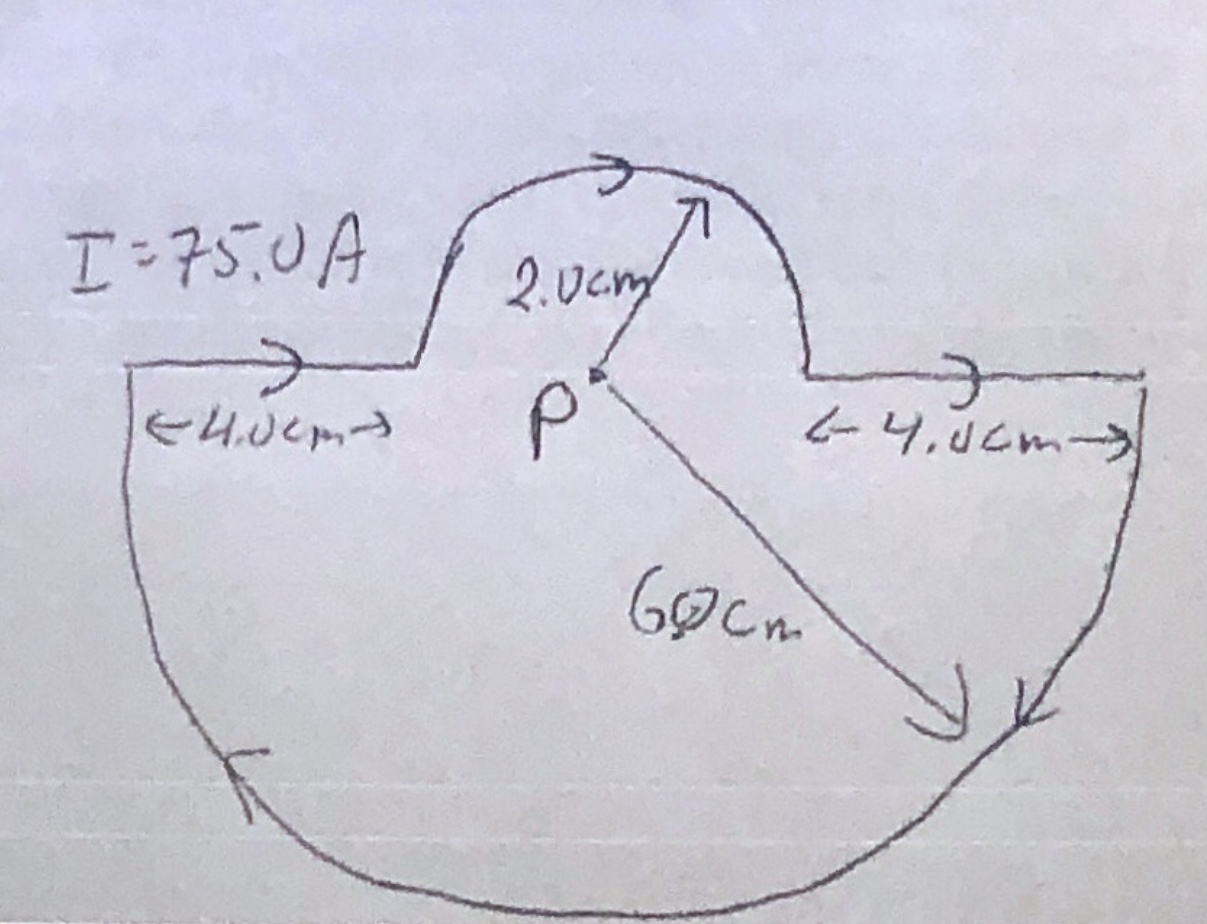 I=75.0A
2.0cm
←4.0cm→
P
←4.0cm→
60cm